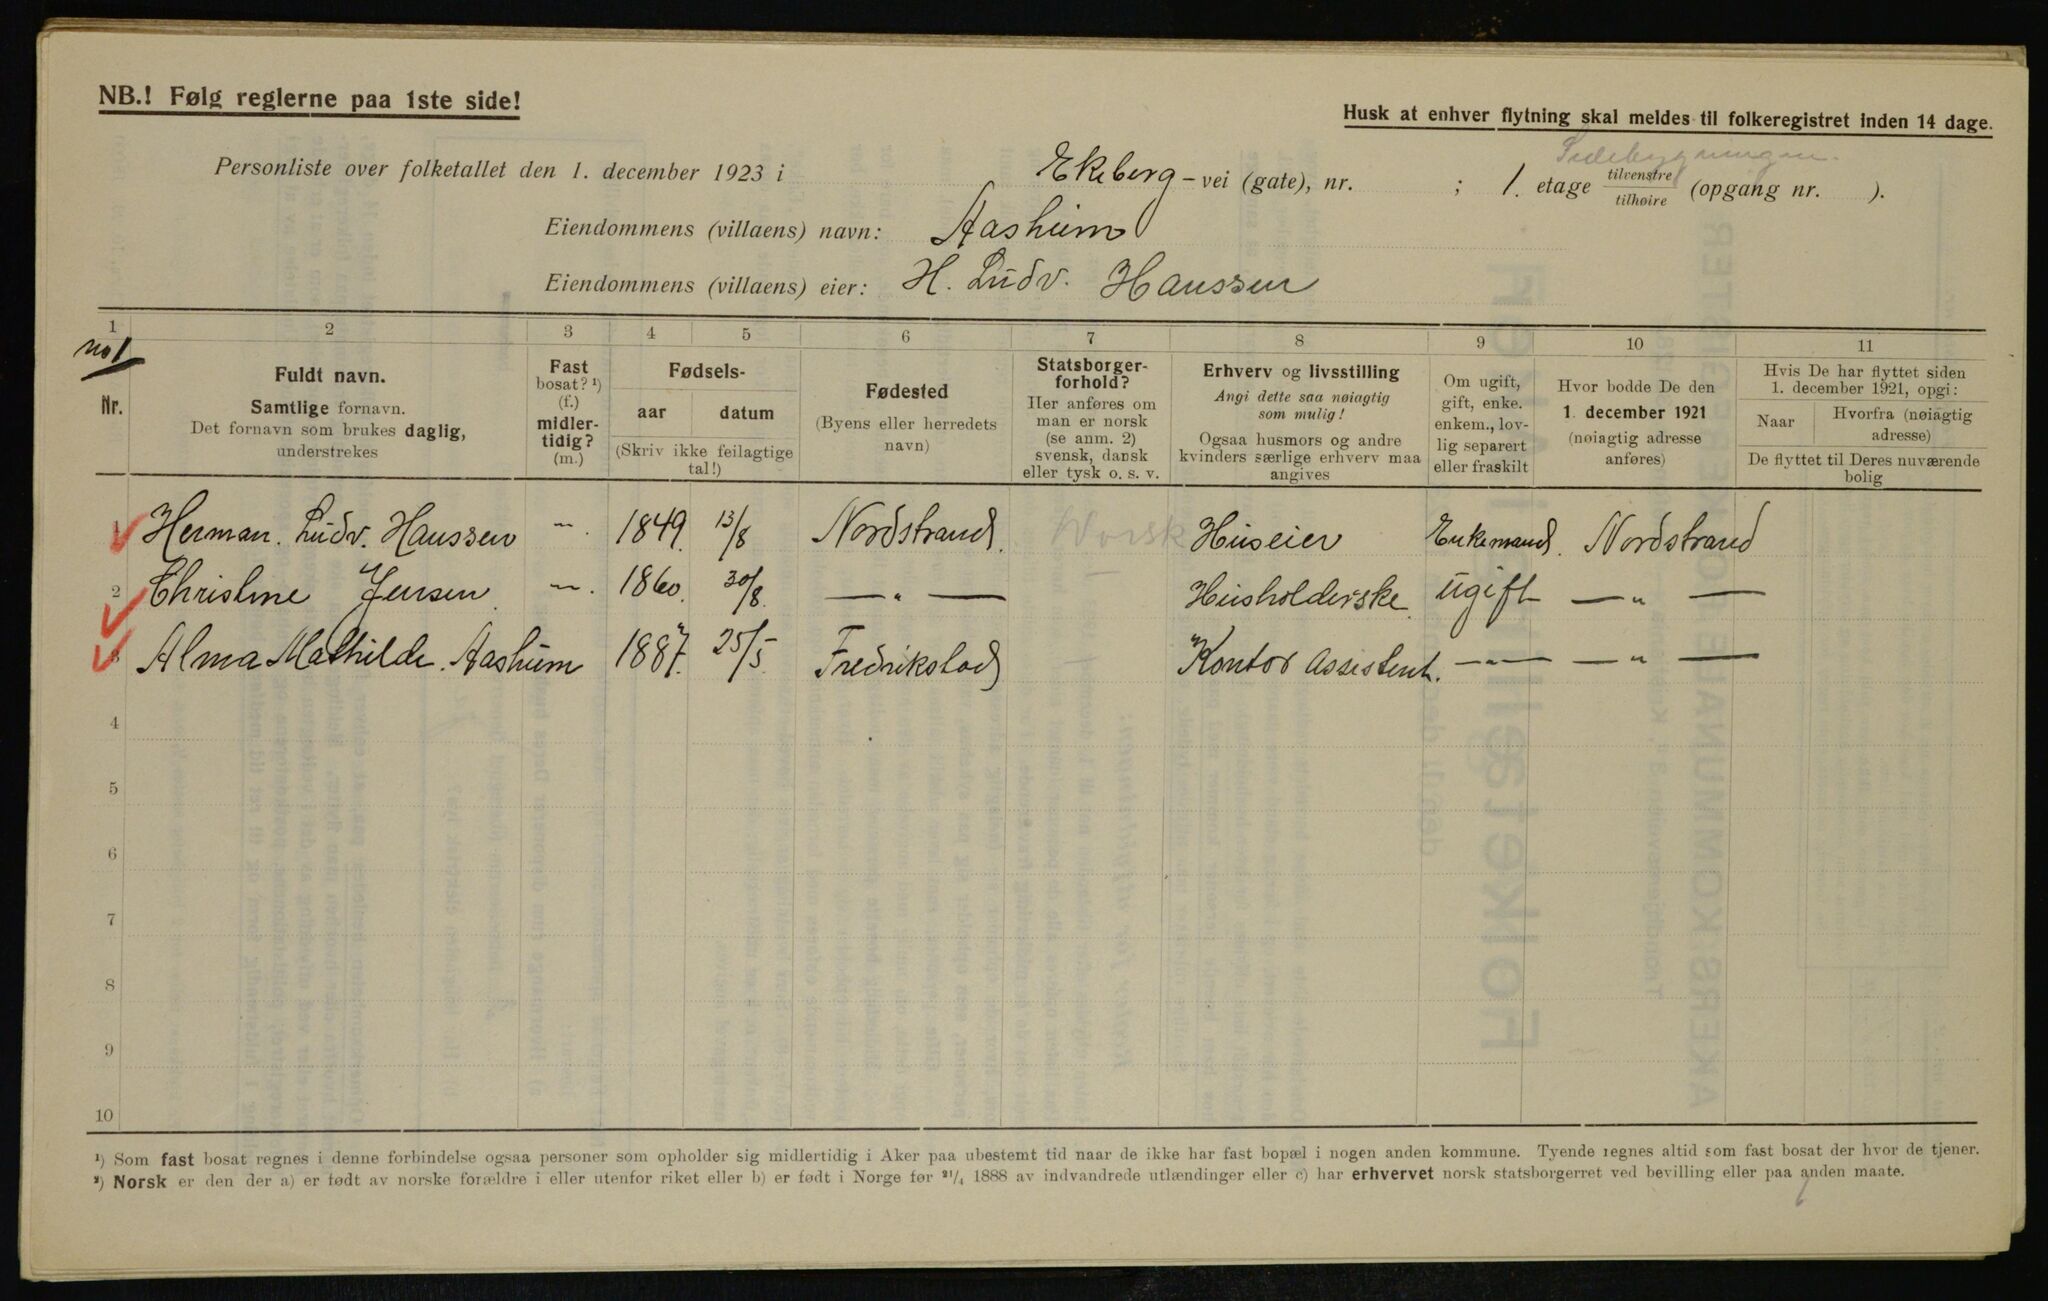 NB.! Følg reglerne paa 1ste side!
Husk at enhver flytning skal meldes til folkeregistret inden 14 dage.
Sidebygningen.
Personliste over folketallet den 1. december 1923 i Ekeberg-vei (gate), nr. ; 1. etage tilvenstre tilhøire (opgang nr. ).
Eiendommens (villaens) navn: Aasheim
Eiendommens (villaens) eier: H. Ludv. Hanssen
1 2 3 4 5 6 7 8 9 10 11
no 1
Nr.
Fuldt navn.
Samtlige fornavn.
Det fornavn som brukes daglig,
understrekes
Fast
bosat? ¹)
(f.)
midler-
tidig?
(m.)
Fødsels-
aar datum
(Skriv ikke feilagtige
tal!)
Fødested
(Byens eller herredets
navn)
Statsborger-
forhold?
Her anføres om
man er norsk
(se anm. 2)
svensk, dansk
eller tysk o. s. v.
Erhverv og livsstilling
Angi dette saa nøiagtig
som mulig!
Ogsaa husmors og andre
kvinders særlige erhverv maa
angives
Om ugift,
gift, enke.
enkem., lov-
lig separert
eller fraskilt
Hvor bodde De den
1. december 1921
(nøiagtig adresse
anføres)
Hvis De har flyttet siden
1. december 1921, opgi:
Naar
Hvorfra (nøiagtig
adresse)
De flyttet til Deres nuværende
bolig
1 Herman. Ludv. Hanssen — 1849. 13/8 Nordstrand. Norsk Huseier Enkemand. Nordstrand
2 Christine Jensen — 1860. 30/8. — „ — | Husholderske. ugift — „ —
3 Alma Mathilde. Aasheim 1887. 25/5 Fredrikstad | Kontor Assistent. — „ — — „ —
4
5
6
7
8
9
10
¹) Som fast bosat regnes i denne forbindelse ogsaa personer som opholder sig midlertidig i Aker paa ubestemt tid naar de ikke har fast bopæl i nogen anden kommune. Tyende regnes altid som fast bosat der hvor de tjener.
²) Norsk er den der a) er født av norske forældre i eller utenfor riket eller b) er født i Norge før 21/4 1888 av indvandrede utlændinger eller c) har erhvervet norsk statsborgerret ved bevilling eller paa anden maate.